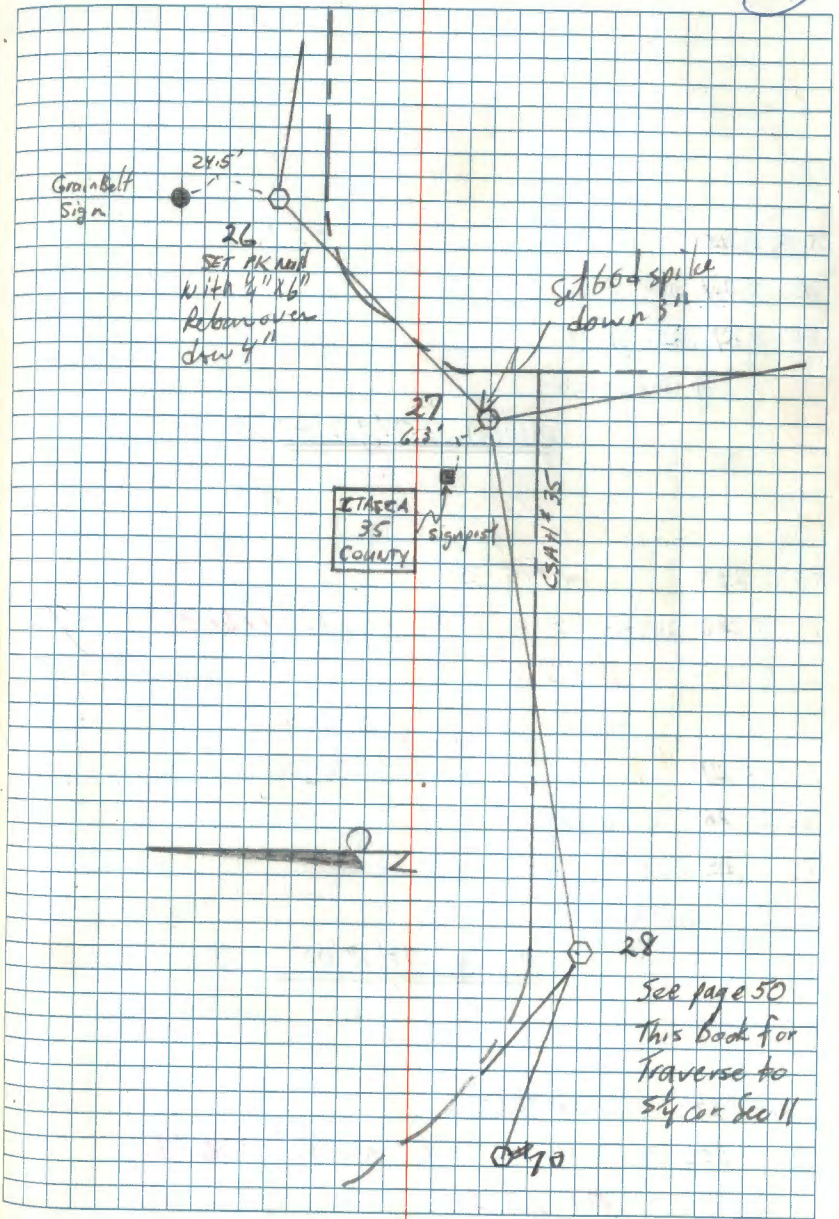 24.5'
GrainBelt
Sign
26
SET PK Nail
with 4" X 6"
Rebar over
down 4"
Set 60d spike
down 3"
27
6.3'
ITASCA
35
COUNTY
signpost
CSAH # 35
N
28
See page 50
This Book for
Traverse to
S¼ cor Sec 11